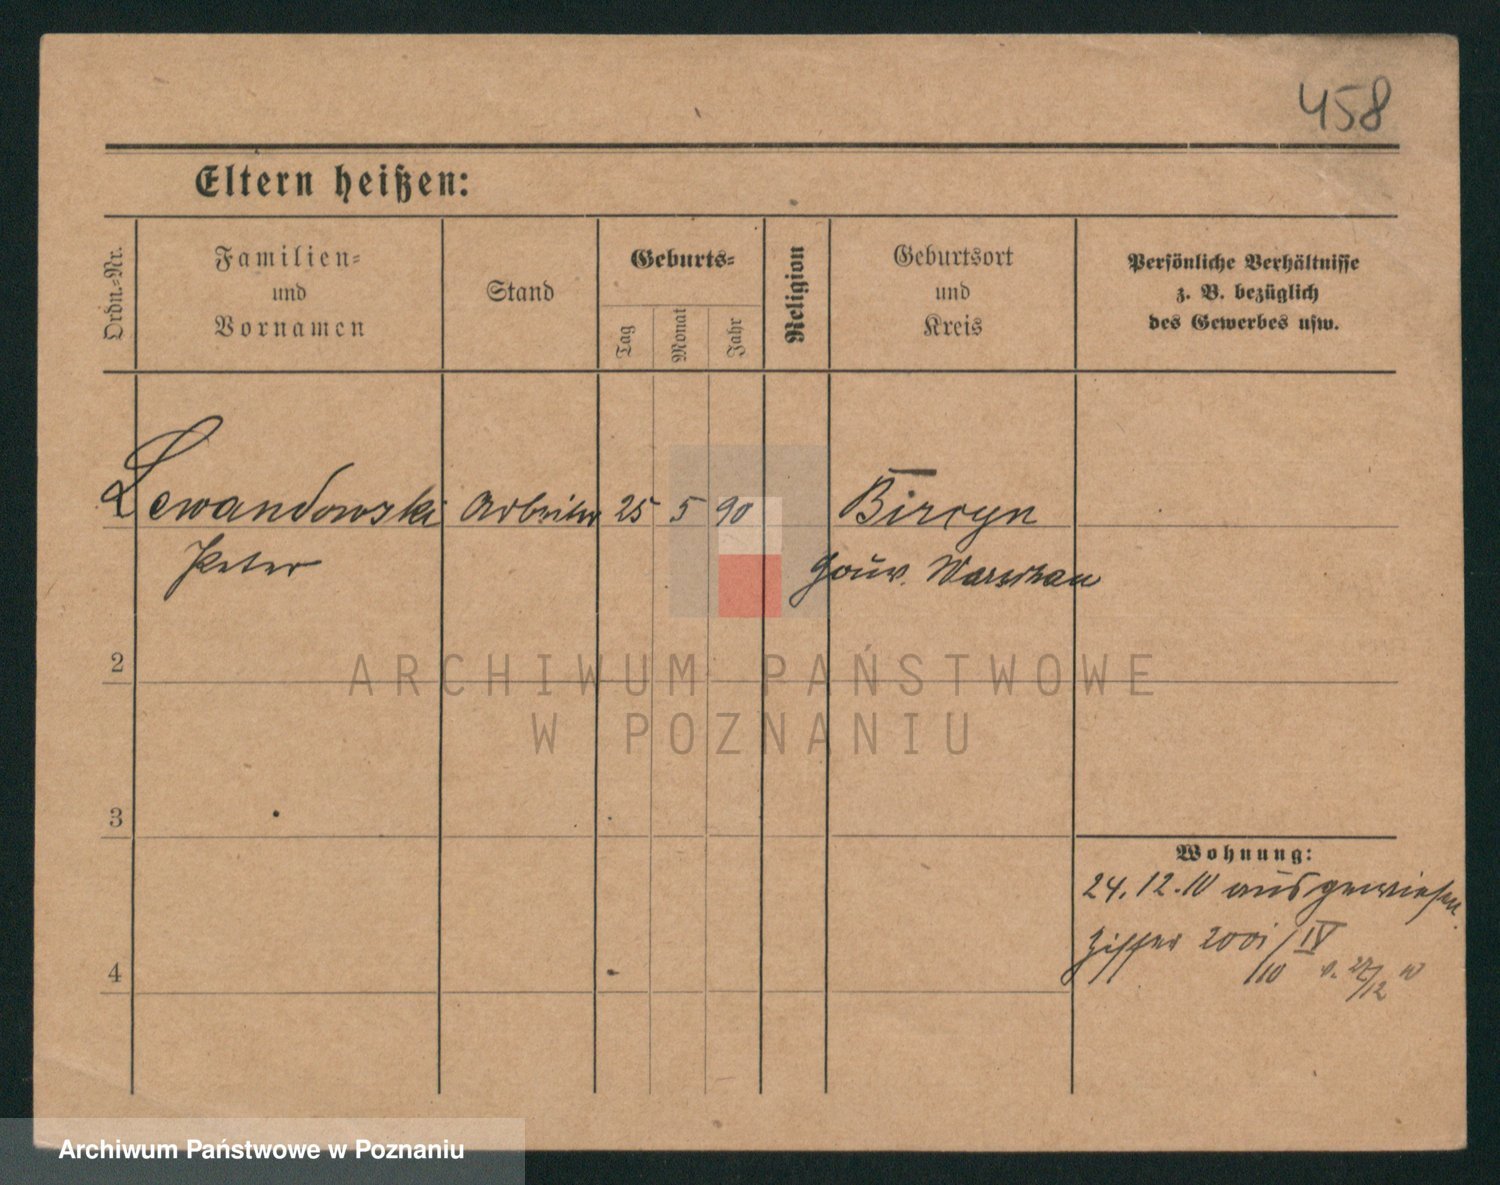 458
Eltern heißen:
Ordn.-Nr.
Familien-
und
Vornamen
Stand
Geburts-
Tag
Monat
Jahr
Religion
Geburtsort
und
Kreis
Persönliche Verhältnisse
z. B. bezüglich
des Gewerbes usw.
Lewandowski Arbeiter 25 5 90
Peter
Gouv. Warschau
2
ARCHIWUM PAŃSTWOWE
W POZNANIU
3
Wohnung:
24.12.10 ausgewiesen
4
Archiwum Państwowe w Poznaniu